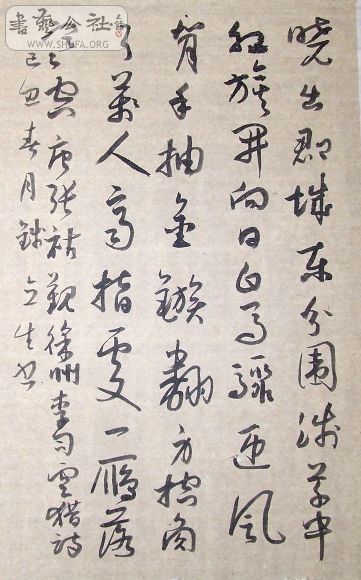 書藝公社
WWW.SHUFA.ORG
晓出郡城东分围浅草中
红旗开向日白马骤迎风
背手抽金镞翻身控角
弓万人齐指处一雁落
寒空唐张祜观徐州李司空猎诗
己丑春月立生书